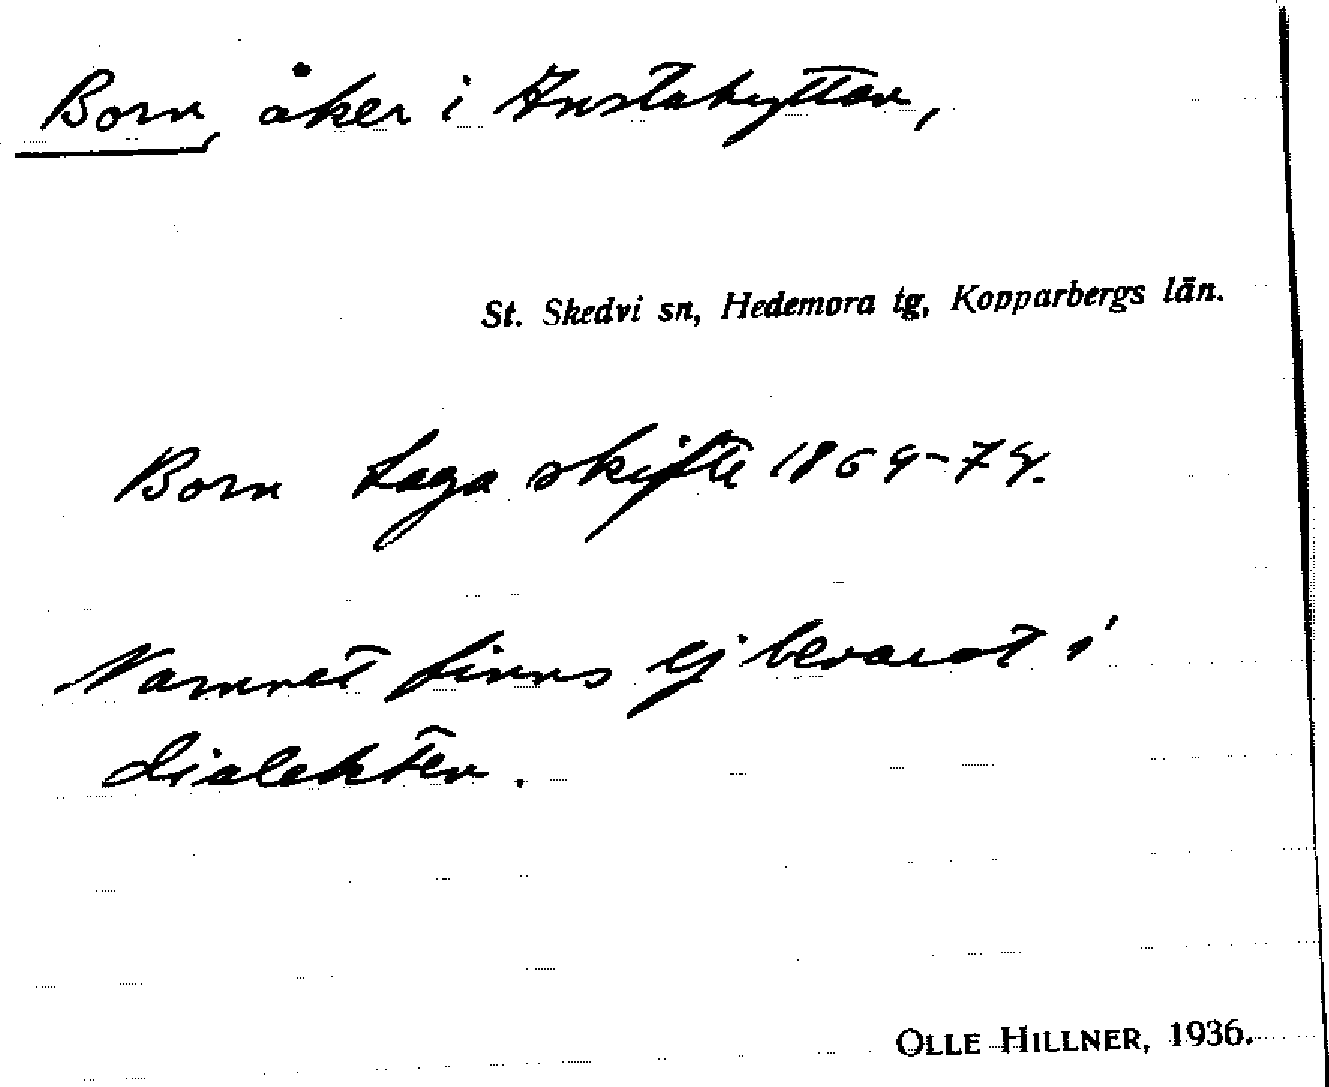 Born, åker i Anstahyttan,
St. Skedvi sn, Hedemora tg, Kopparbergs län.
Born Laga skifte 1869-74.
Namnet finns ej bevarat i
dialekten.
OLLE HILLNER, 1936.